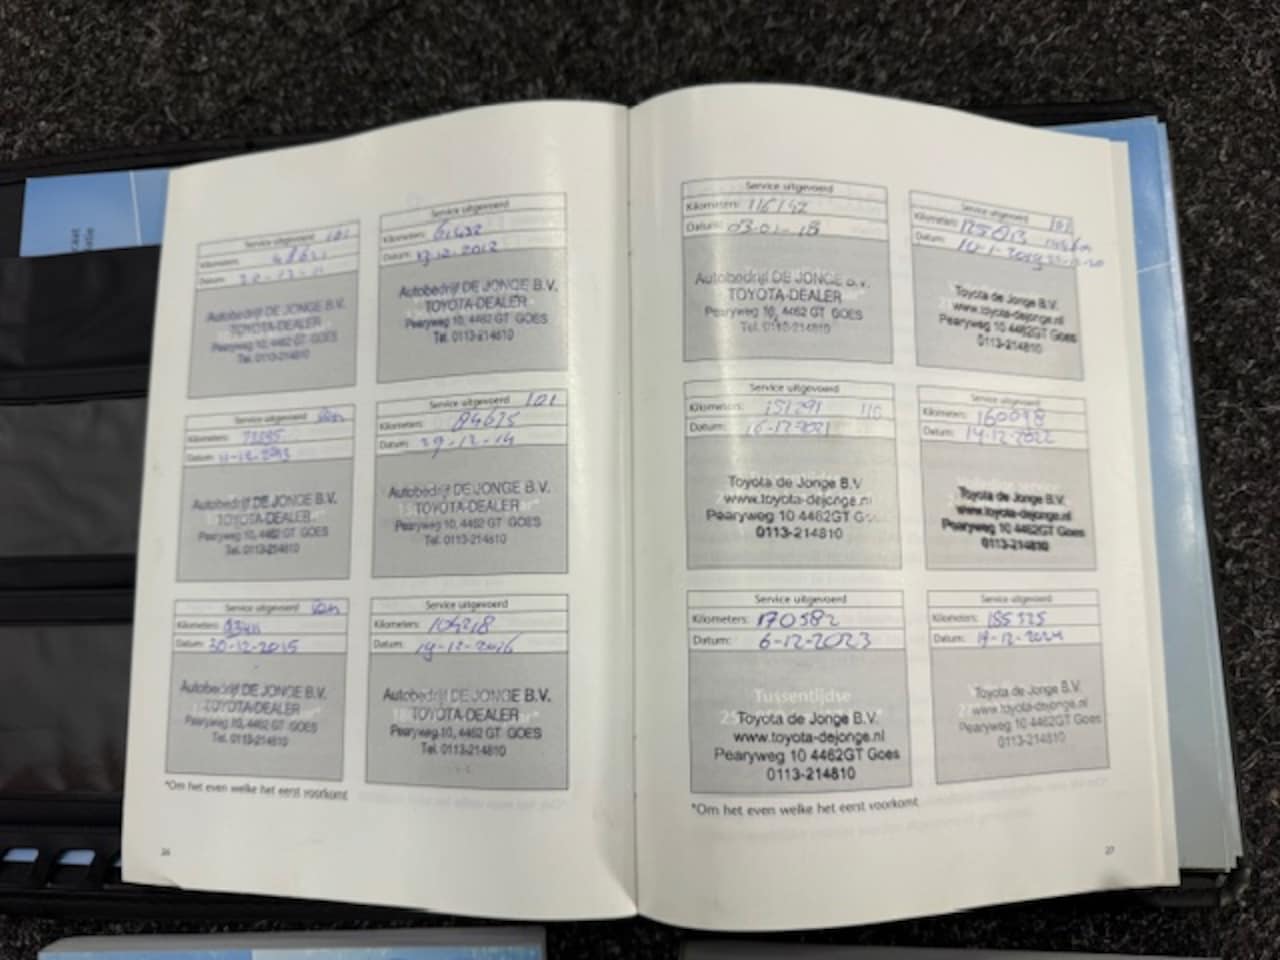 Service uitgevoerd 101
Kilometers:
Datum:
Autobedrijf DE JONGE B.V.
TOYOTA-DEALER
Pearyweg 10, 4462 GT GOES
Tel. 0113-214810
Service uitgevoerd
Kilometers: 61432
Datum: 13-12-2012
Autobedrijf DE JONGE B.V.
TOYOTA-DEALER
Pearyweg 10, 4462 GT GOES
Tel. 0113-214810
Service uitgevoerd
Kilometers:
Datum: 11-12-2013
Autobedrijf DE JONGE B.V.
TOYOTA-DEALER
Pearyweg 10, 4462 GT GOES
Tel. 0113-214810
Service uitgevoerd 101
Kilometers: 84675
Datum: 29-12-14
Autobedrijf DE JONGE B.V.
TOYOTA-DEALER
Pearyweg 10, 4462 GT GOES
Tel. 0113-214810
Service uitgevoerd
Kilometers:
Datum: 30-12-2015
Autobedrijf DE JONGE B.V.
TOYOTA-DEALER
Pearyweg 10, 4462 GT GOES
Tel. 0113-214810
Service uitgevoerd
Kilometers: 104218
Datum: 19-12-2016
Autobedrijf DE JONGE B.V.
TOYOTA-DEALER
Pearyweg 10, 4462 GT GOES
Tel. 0113-214810
*Om het even welke het eerst voorkomt
26
Service uitgevoerd
Kilometers: 116142
Datum: 03-01-18
Autobedrijf DE JONGE B.V.
TOYOTA-DEALER
Pearyweg 10, 4462 GT GOES
Tel. 0113-214810
Service uitgevoerd 101
Kilometers: 125013
Datum: 10-1-2019
Toyota de Jonge B.V.
www.toyota-dejonge.nl
Pearyweg 10 4462GT Goes
0113-214810
Service uitgevoerd
Kilometers: 151291 110
Datum: 16-12-2021
Toyota de Jonge B.V.
www.toyota-dejonge.nl
Pearyweg 10 4462GT
0113-214810
Service uitgevoerd
Kilometers: 160098
Datum: 14-12-2022
Toyota de Jonge B.V.
www.toyota-dejonge.nl
Pearyweg 10 4462GT Goes
0113-214810
Service uitgevoerd
Kilometers: 170582
Datum: 6-12-2023
Tussentijdse
Toyota de Jonge B.V.
www.toyota-dejonge.nl
Pearyweg 10 4462GT Goes
0113-214810
Service uitgevoerd
Kilometers: 185325
Datum: 19-12-2024
Toyota de Jonge B.V.
www.toyota-dejonge.nl
Pearyweg 10 4462GT Goes
0113-214810
*Om het even welke het eerst voorkomt
27